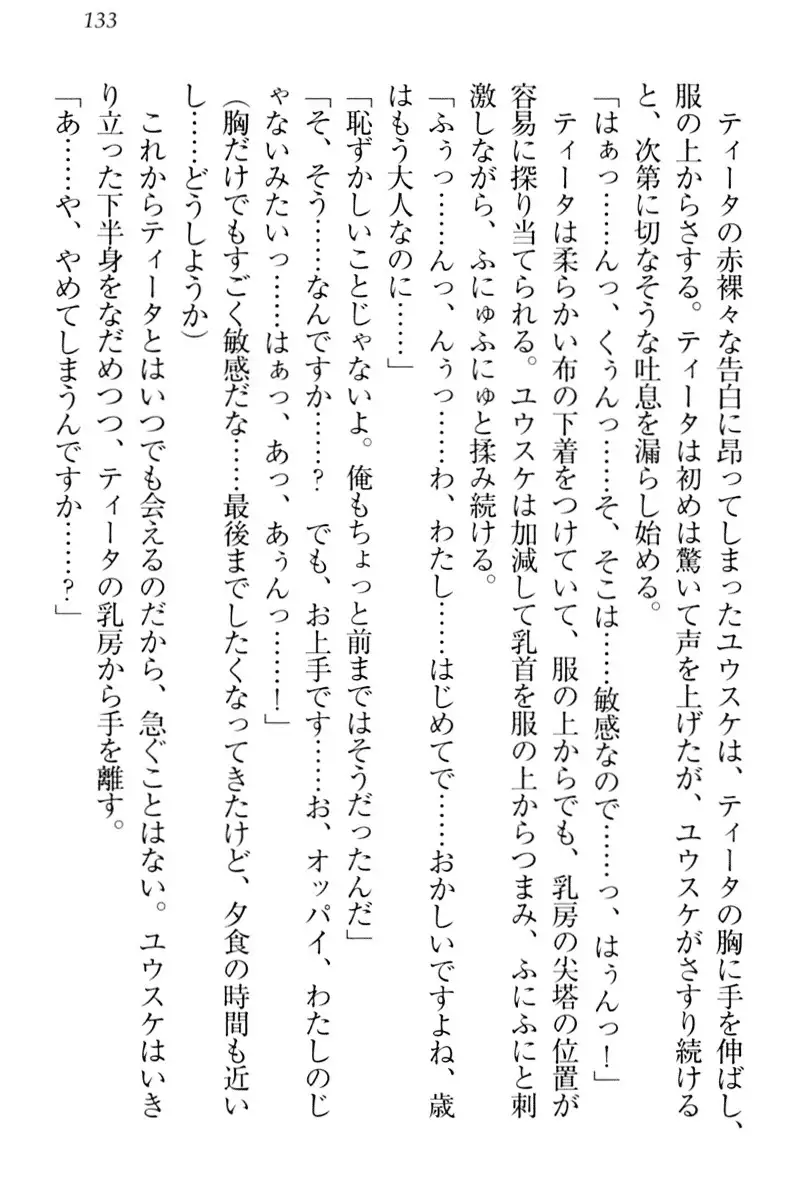 133
ティータの赤裸々な告白に昂ってしまったユウスケは、ティータの胸に手を伸ばし、
服の上からさする。ティータは初めは驚いて声を上げたが、ユウスケがさすり続ける
と、次第に切なそうな吐息を漏らし始める。
「はぁっ……んっ、くぅんっ……そ、そこは……敏感なので……っ、はぅんっ！」
ティータは柔らかい布の下着をつけていて、服の上からでも、乳房の尖塔の位置が
容易に探り当てられる。ユウスケは加減して乳首を服の上からつまみ、ふにふにと刺
激しながら、ふにゅふにゅと揉み続ける。
「ふぅっ……んっ、んぅっ……わ、わたし……はじめてで……おかしいですよね、歳
はもう大人なのに……」
「恥ずかしいことじゃないよ。俺もちょっと前まではそうだったんだ」
「そ、そう……なんですか……？　でも、お上手です……お、オッパイ、わたしのじ
ゃないみたいっ……はぁっ、あっ、あぅんっ……！」
（胸だけでもすごく敏感だな……最後までしたくなってきたけど、夕食の時間も近い
し……どうしようか）
これからティータとはいつでも会えるのだから、急ぐことはない。ユウスケはいき
り立った下半身をなだめつつ、ティータの乳房から手を離す。
「あ……や、やめてしまうんですか……？」